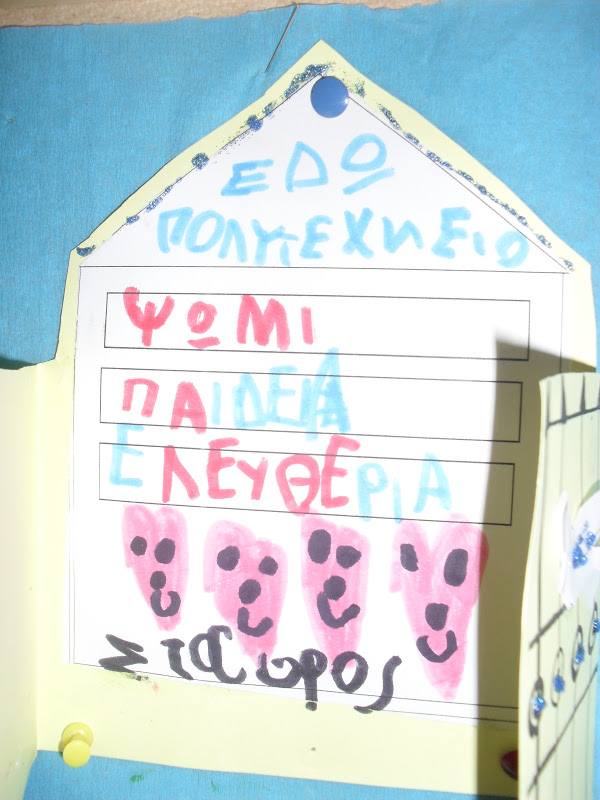 ΕΔΩ
ΠΟΛΥΤΕΧΝΕΙΟ
ΨΩΜΙ
ΠΑΙΔΕΙΑ
ΕΛΕΥΘΕΡΙΑ
Σταύρος